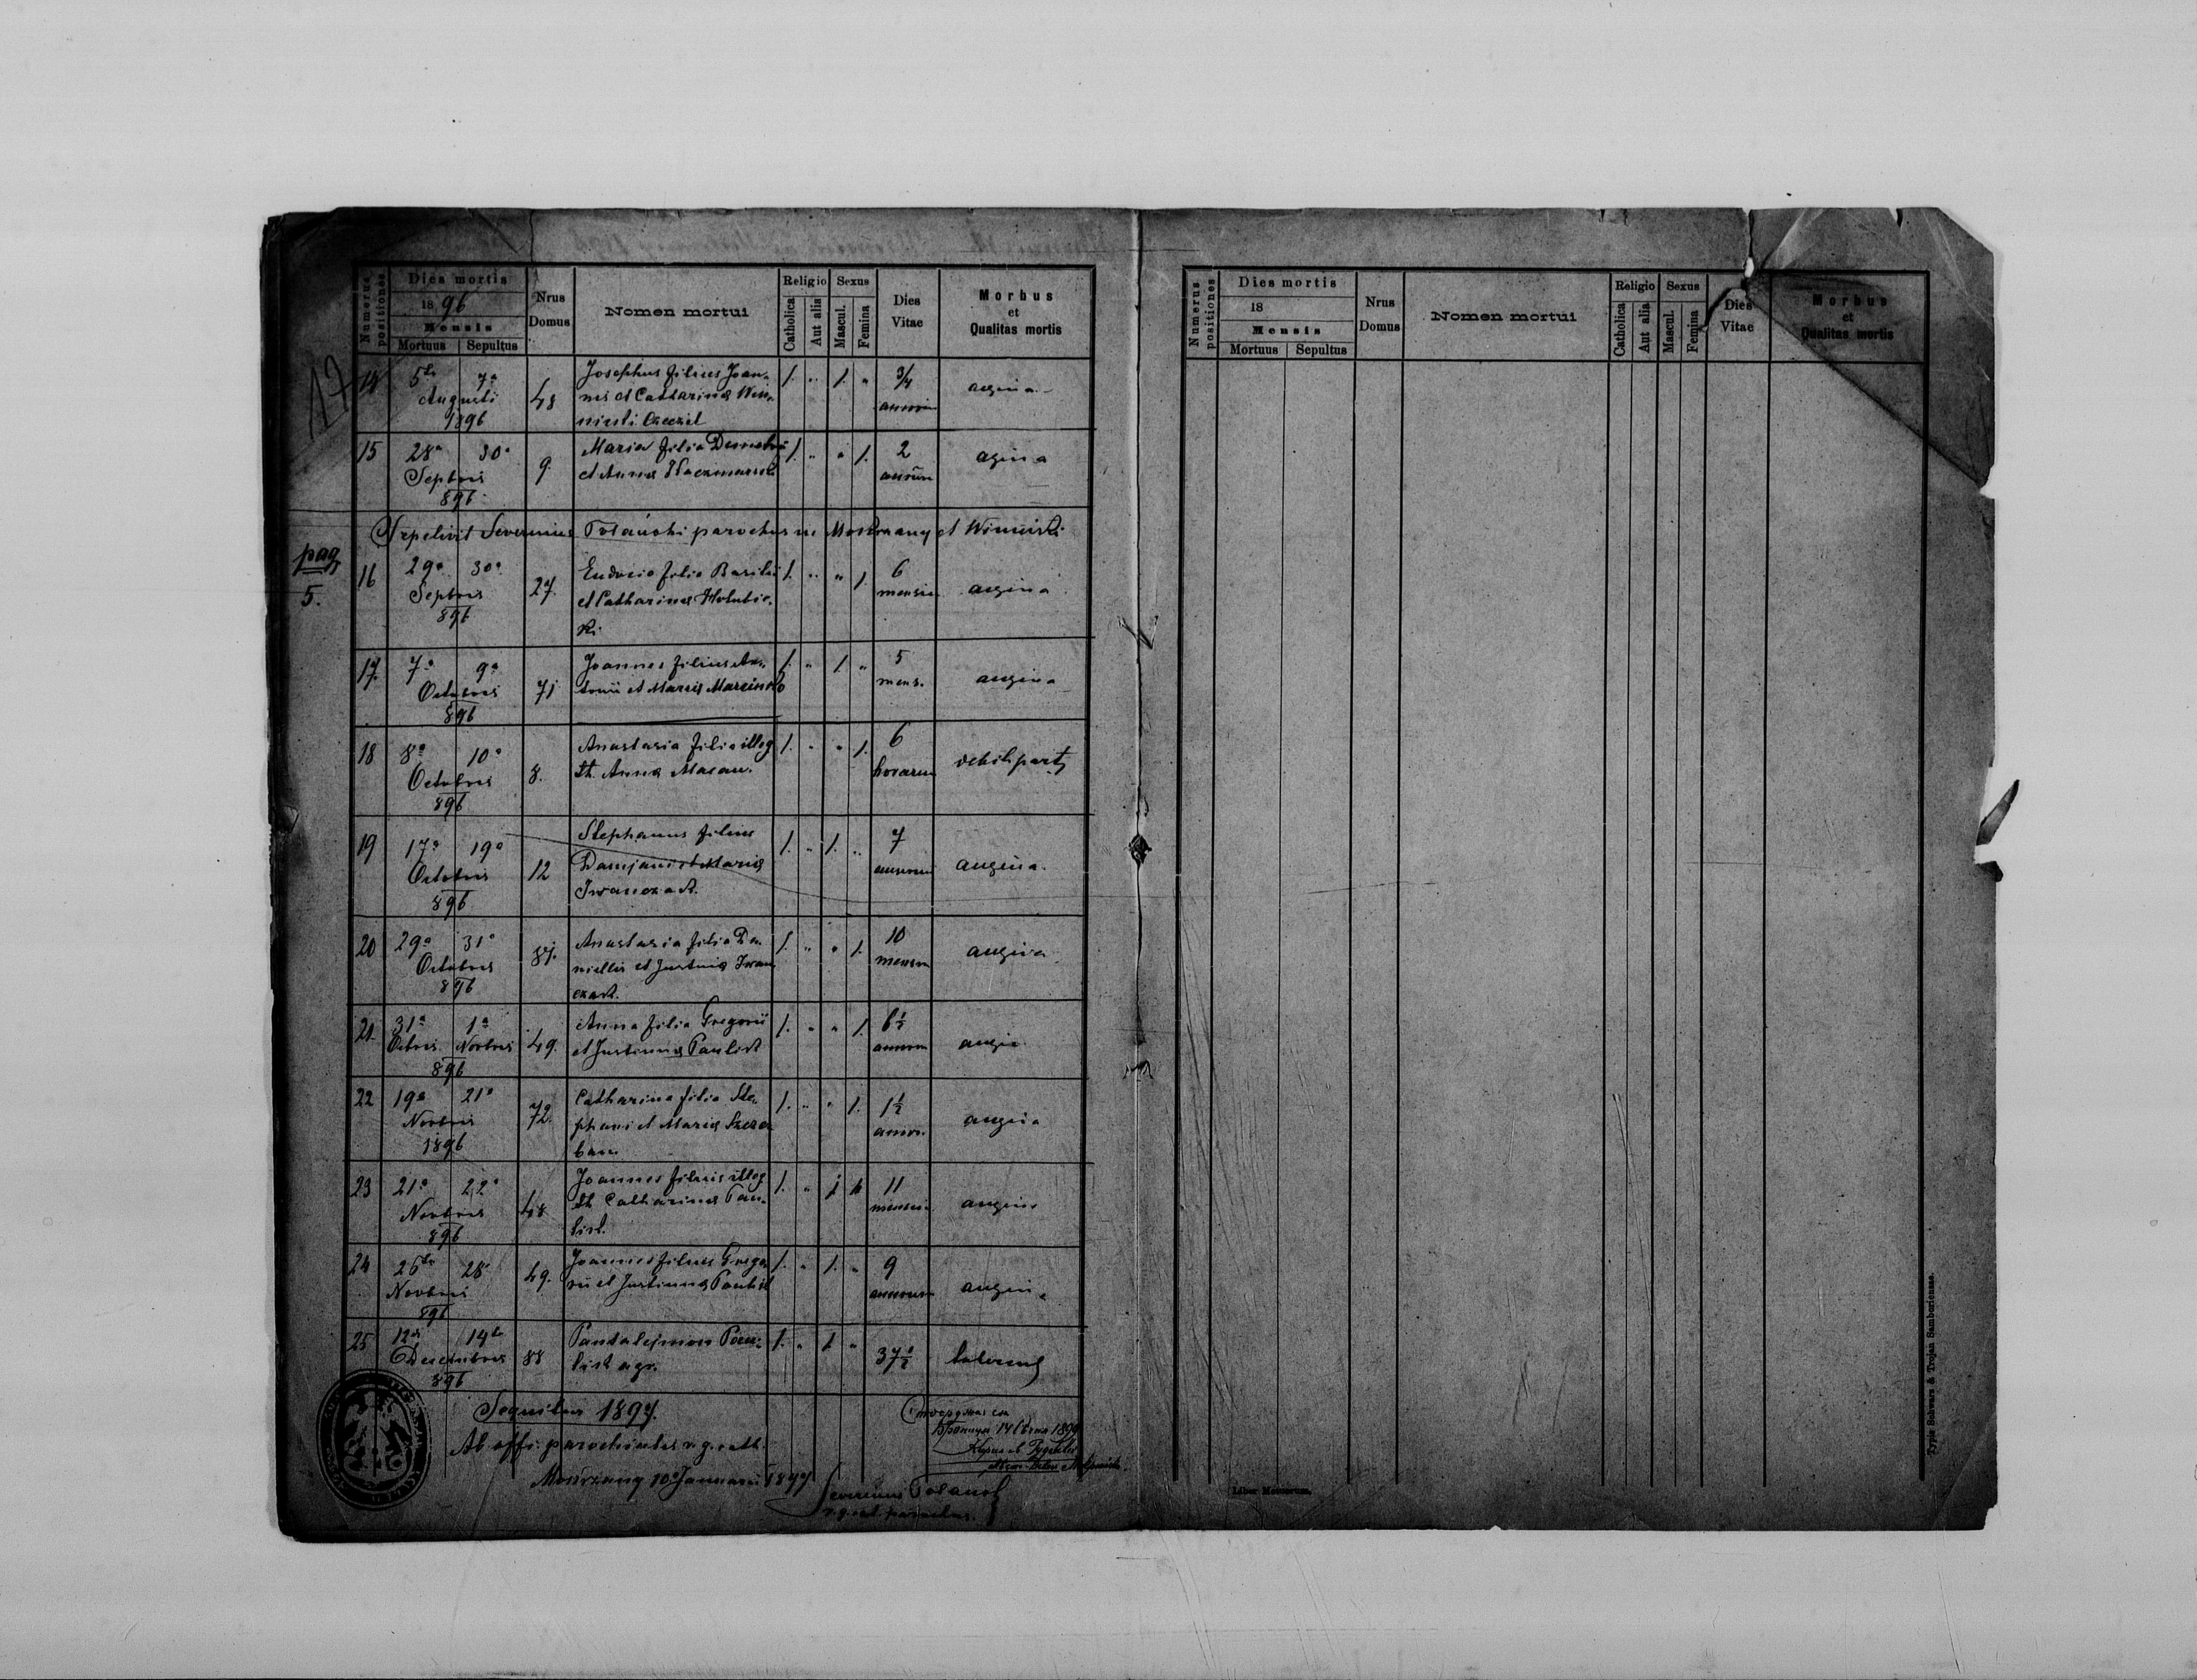 17
pag
5.
Numerus positiones
Dies mortis
1896
Mensis
Mortuus Sepultus
Nrus Domus
Nomen mortui
Religio
Catholica Aut alia
Sexus
Mascul. Femina
Dies Vitae
Morbus
et
Qualitas mortis
14 5ta 7a Augusti 1896 48
Josephus filius Joan-
nis et Catharinæ
1. " 1. " 3/4 annorum angina
15 28a 30a Septbris 896 9
Maria filia Demetrii
et Annæ Kaczmaryk
1. " " 1. 2 annorum agina
Sepelivit Severinus Tolański parochus in Mostrzany et Winniczki
16 29a 30a Septbris 896 27
Eudocia filia Basilii
et Catharinæ Holubic-
ki
1. " " 1. 6 mensium angina
17. 7a 9a Octobris 896 71
Joannes filius An-
tonii et Mariæ
1. " 1 " 5 mens. angina
18 8a 10a Octobris 896 8.
Anastasia filia illeg
th. Annæ
1. " " 1. 6 horarum debil. part
19 17a 19a Octobris 896 12
Stephanus filius
Damjani et Mariæ
Iwanczak.
1. " 1. " 7 annorum angina.
20 29a 31a Octobris 896
Anastasia filia Da-
niellis et Justinæ Iwan
czak.
1. " " 1. 10 mensium angina
21 31a Octbris 1a Novbris 896 49.
Anna filia Gregorii
et Justinnæ Paulist
1. " " 1. 6½ annorum angin
22 19a 21a Novbris 1896 72.
Catharina filia Ste-
phani et Mariæ Szczer
ban
1. " " 1. 1½ annor. angina
23 21a 22a Novbris 896 48
Joannes filius illeg
th Catharinæ Pau-
list.
1. " 1 " 11 mensium angina
24 26ta 28a Novbris 896 49.
Joannes filius Grego
rii et Justinnæ Paulist
1. " 1. " 9 annorum angina
25 12a 14ta Decembris 896 88
Pantalejmon Pau-
list agr.
1. " 1 " 37½
Sequitur 1897.
Ab offi. parochiales r. g. cath.
10a Januarii 1897
Severinus Tolański
r. g. cat. parochus.
Numerus positiones
Dies mortis
18
Mensis
Mortuus Sepultus
Nrus Domus
Nomen mortui
Religio
Catholica Aut alia
Sexus
Mascul. Femina
Dies Vitae
Morbus
et
Qualitas mortis
Liber Mortuorum.
Typis Schwarz & Trojan Samboriensse.